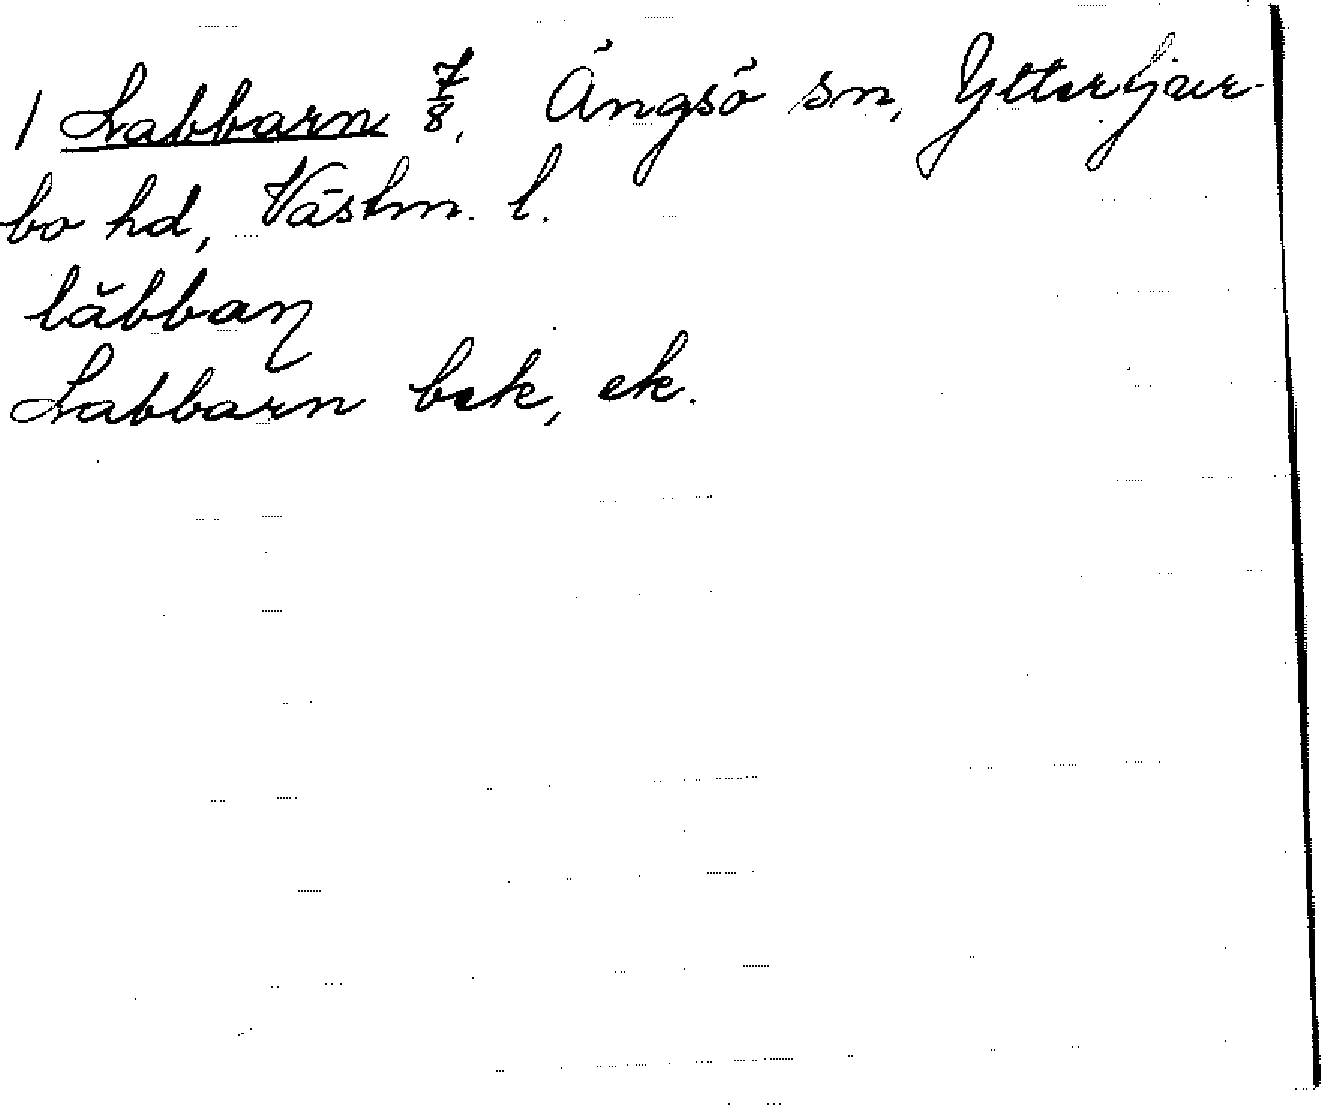 1 Labbarn 7/8, Ängsö sn, Yttertjur-
bo hd, Västm. l.
lăbbaɳ
Labbarn bek, ek.